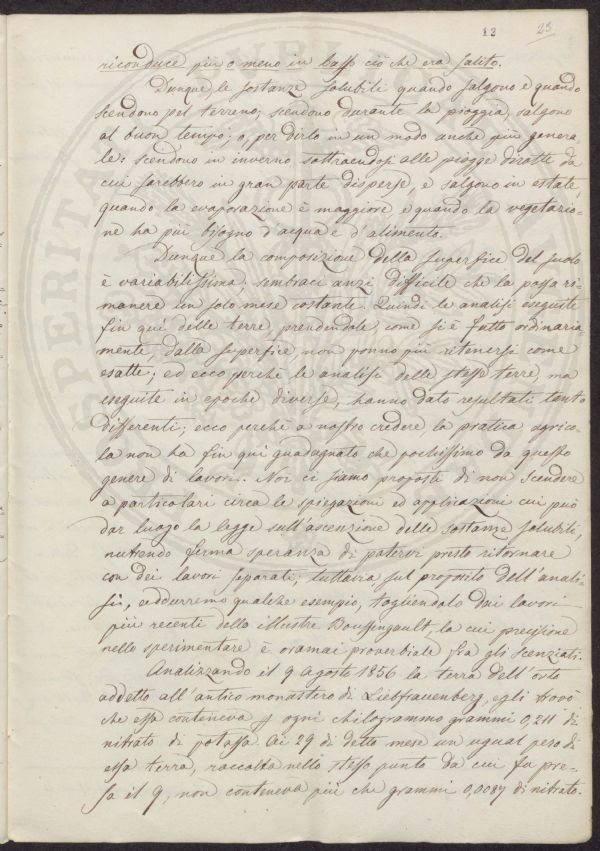 12 23
riconduce più o meno in basso ciò che era salito.
Dunque le sostanze solubili quando salgono e quando
scendono pel terreno; scendono durante la pioggia, salgono
al buon tempo; o, per dirlo in un modo anche più genera-
le: scendono in inverno sottraendosi alle piogge dirotte da
cui sarebbero in gran parte disperse, e salgono in estate
quando la evaporazione è maggiore e quando la vegetazio-
ne ha più bisogno d'acqua e d'alimento.
Dunque la composizione della superfice del suolo
è variabilissima; sembraci anzi difficile che la possa ri-
manere un solo mese costante. Quindi le analisi eseguite
fin qui delle terre, prendendole, come si è fatto ordinaria-
mente, dalla superfice non ponno più ritenersi come
esatte; ed ecco perchè le analisi delle stesse terre, ma
eseguite in epoche diverse, hanno dato resultati tanto
differenti; ecco perchè a nostro credere, la pratica agrico-
la non ha fin qui guadagnato che pochissimo da questo
genere di lavori. Noi ci siamo proposti di non scendere
a particolari circa le spiegazioni ed applicazioni cui può
dar luogo la legge sull'ascenzione delle sostanze solubili,
nutrendo ferma speranza di potervi presto ritornare
con dei lavori separati; tuttavia, sul proposito dell'anali-
si, addurremo qualche esempio, togliendolo dai lavori
più recenti dello illustre Boussingault, la cui precisione
nello sperimentare è oramai proverbiale fra gli scenziati.
Analizzando il 9 Agosto 1856 la terra dell'orto
addetto all'antico monastero di Liebfrauenberg, egli trovò
che essa conteneva p ogni chilogrammo grammi 0,211 di
nitrato di potassa. Ai 29 di detto mese un ugual peso di
essa terra, raccolta nello stesso punto da cui fu pre-
sa il 9, non conteneva più che grammi 0,0087 di nitrato.